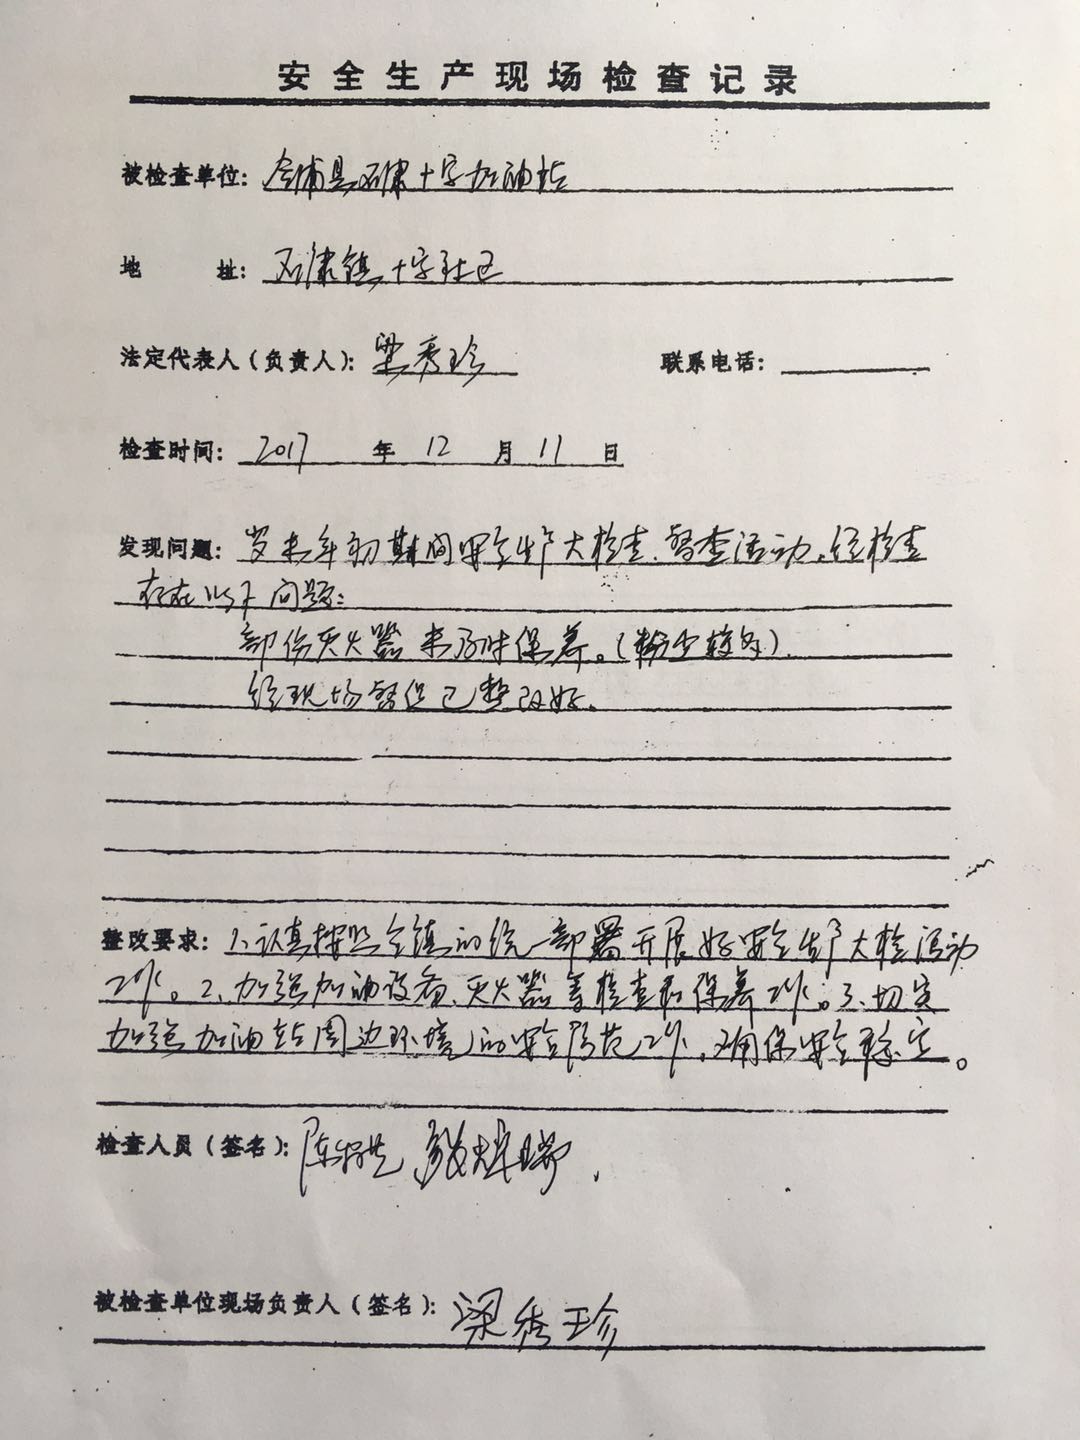 安全生产现场检查记录
被检查单位：合浦县石康十字加油站
地 址：石康镇十字社区
法定代表人（负责人）：梁秀珍 联系电话：
检查时间：2017 年 12 月 11 日
发现问题：岁末年初期间安全生产大检查、督查活动，经检查
存在以下问题：
部份灭火器未及时保养。（粉尘较多）.
经现场督促已整改好。
整改要求：1、认真按照全镇的统一部署开展好安全生产大检活动
工作。2、加强加油设备、灭火器等检查和保养工作。3、切实
加强加油站周边环境的安全防范工作，确保安全稳定。
检查人员（签名）：陈
被检查单位现场负责人（签名）：梁秀珍